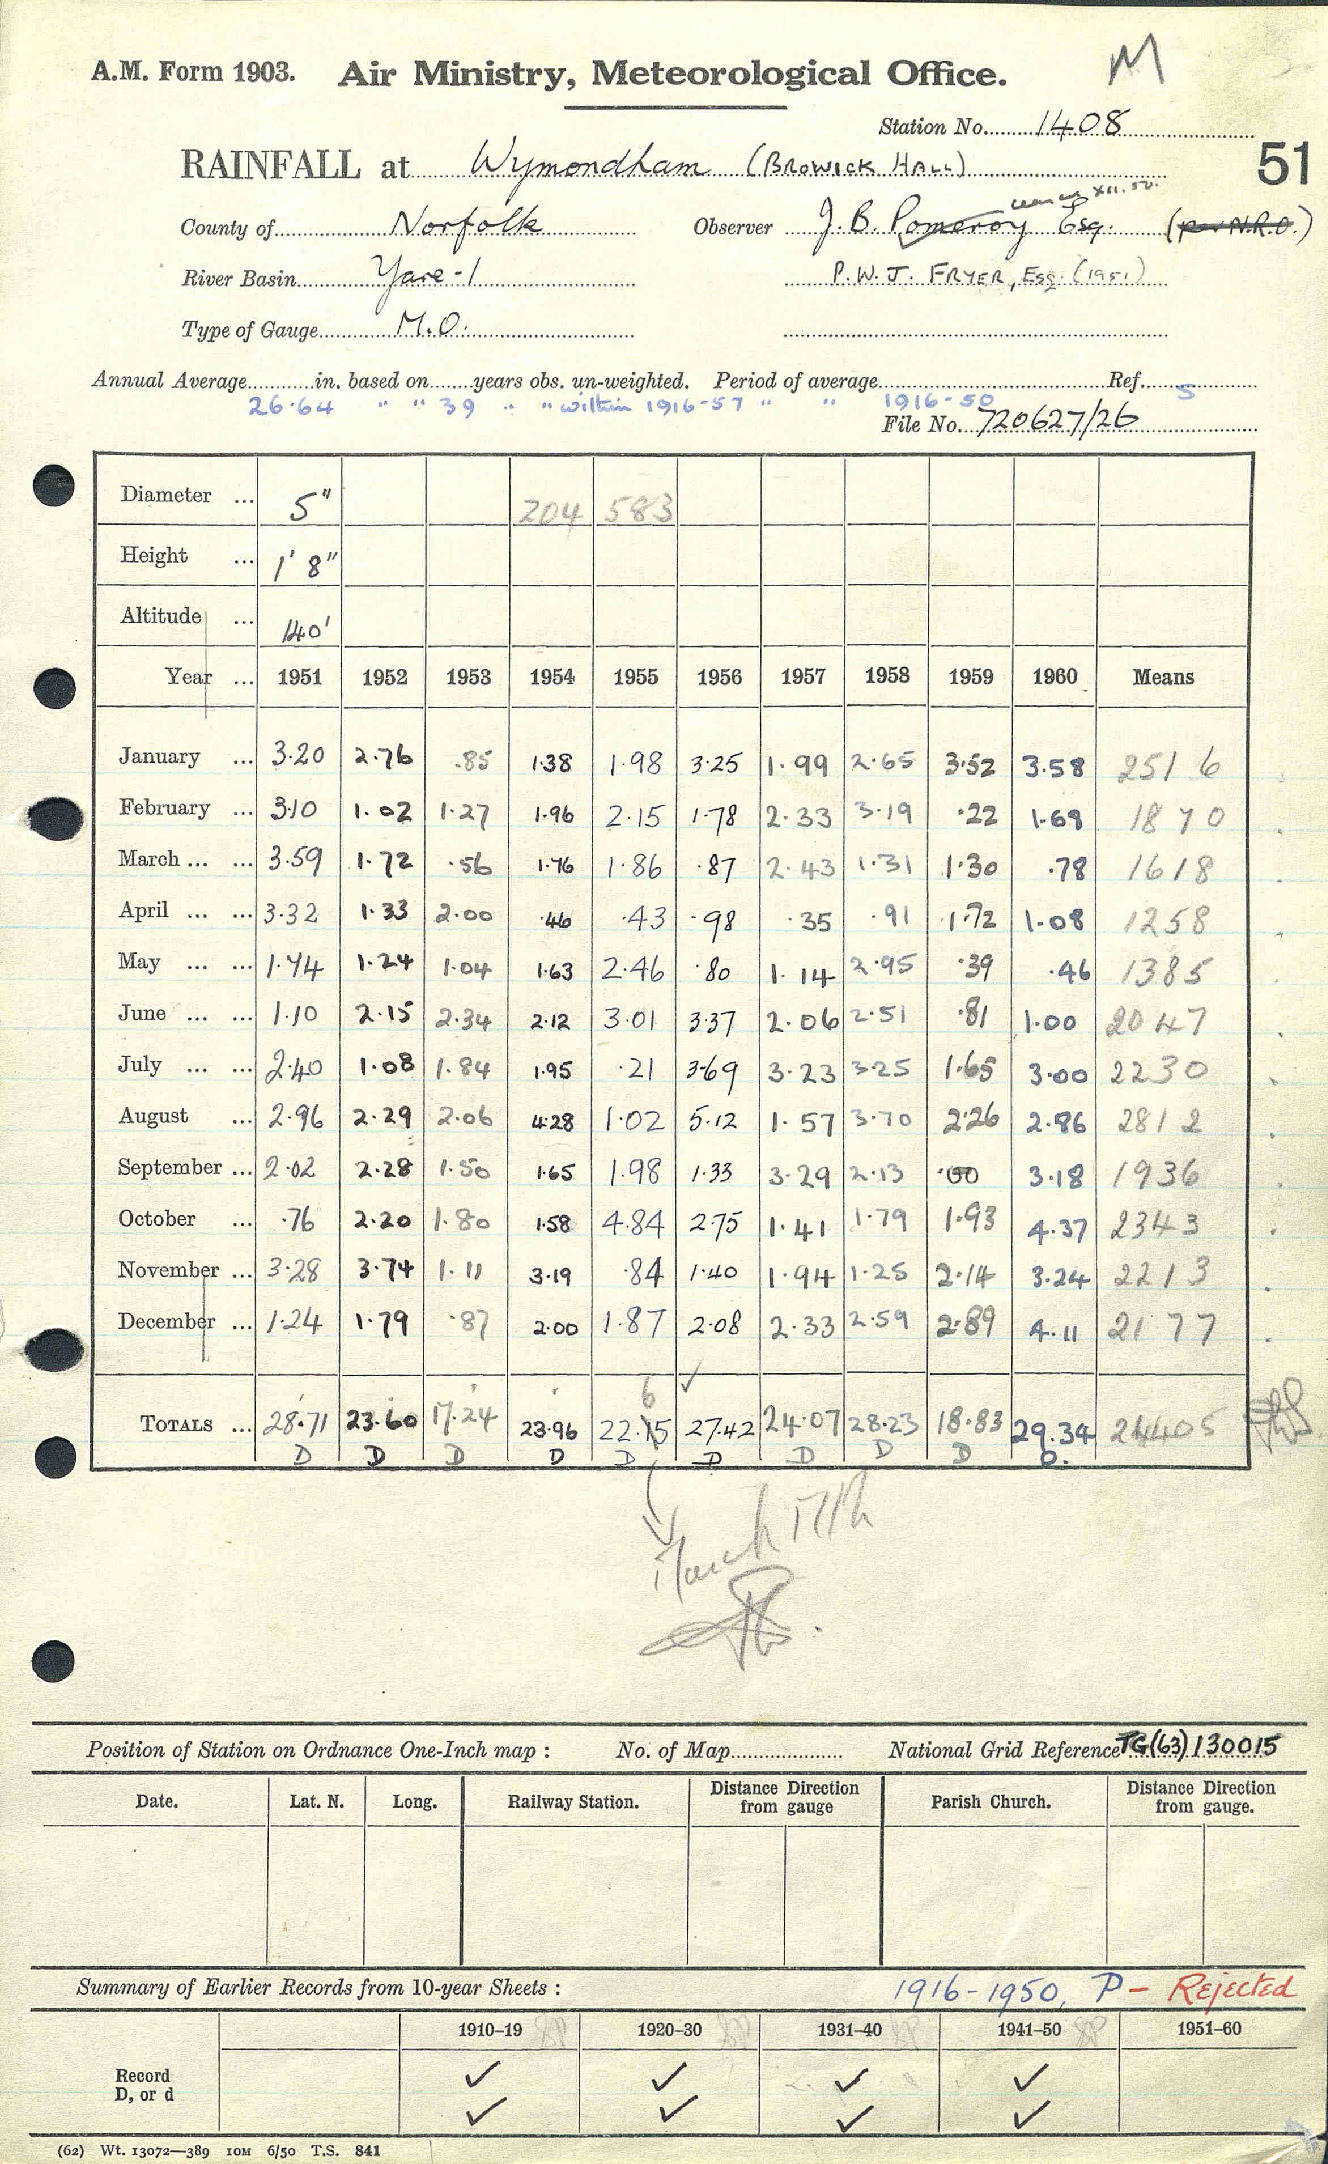 A.M. Form 1903. Air Ministry, Meteorological Office. M
Station No. 1408
RAINFALL at Wymondham (BROWICK HALL) 51
County of Norfolk Observer J. B. Pomeroy Esq. (per N.R.O.)
River Basin Yare-1 P.W.J. FRYER, Esq. (1951)
Type of Gauge M.O.
Annual Average in. based on years obs. un-weighted. Period of average Ref. 5
26.64 " " 39 " " within 1916-57 " " 1916-50
File No. 720627/26
Diameter ... 5" 204 583
Height ... 1' 8"
Altitude ... 140'
Year ... 1951 1952 1953 1954 1955 1956 1957 1958 1959 1960 Means
January ... 3.20 2.76 .85 1.38 1.98 3.25 1.99 2.65 3.52 3.58 2516
February ... 3.10 1.02 1.27 1.96 2.15 1.78 2.33 3.19 .22 1.68 1870
March ... ... 3.59 1.72 .56 1.76 1.86 .87 2.43 1.31 1.30 .78 1618
April ... ... 3.32 1.33 2.00 .46 .43 .98 .35 .91 1.72 1.08 1258
May ... ... 1.74 1.24 1.04 1.63 2.46 .80 1.14 2.95 .39 .46 1385
June ... ... 1.10 2.15 2.34 2.12 3.01 3.37 2.06 2.51 .81 1.00 2047
July ... ... 2.40 1.08 1.84 1.95 .21 3.69 3.23 3.25 1.65 3.00 2230
August ... 2.96 2.29 2.06 4.28 1.02 5.12 1.57 3.70 2.26 2.86 2812
September ... 2.02 2.28 1.50 1.65 1.98 1.33 3.29 2.13 .00 3.18 1936
October ... .76 2.20 1.80 1.58 4.84 2.75 1.41 1.79 1.93 4.37 2343
November ... 3.28 3.74 1.11 3.19 .84 1.40 1.94 1.25 2.14 3.24 2213
December ... 1.24 1.79 .87 2.00 1.87 2.08 2.33 2.59 2.89 4.11 2177
6 ✓
TOTALS ... 28.71 23.60 17.24 23.96 22.15 27.42 24.07 28.23 18.83 29.34 24405
D D D D D D D D D D.
March 17th
Position of Station on Ordnance One-Inch map : No. of Map National Grid Reference TG(63)130015
Date. Lat. N. Long. Railway Station. Distance from gauge Direction Parish Church. Distance from gauge. Direction
Summary of Earlier Records from 10-year Sheets : 1916-1950, P - Rejected
1910-19 1920-30 1931-40 1941-50 1951-60
Record ✓ ✓ ✓ ✓
D, or d ✓ ✓ ✓ ✓
(62) Wt. 13072—389 10M 6/50 T.S. 841